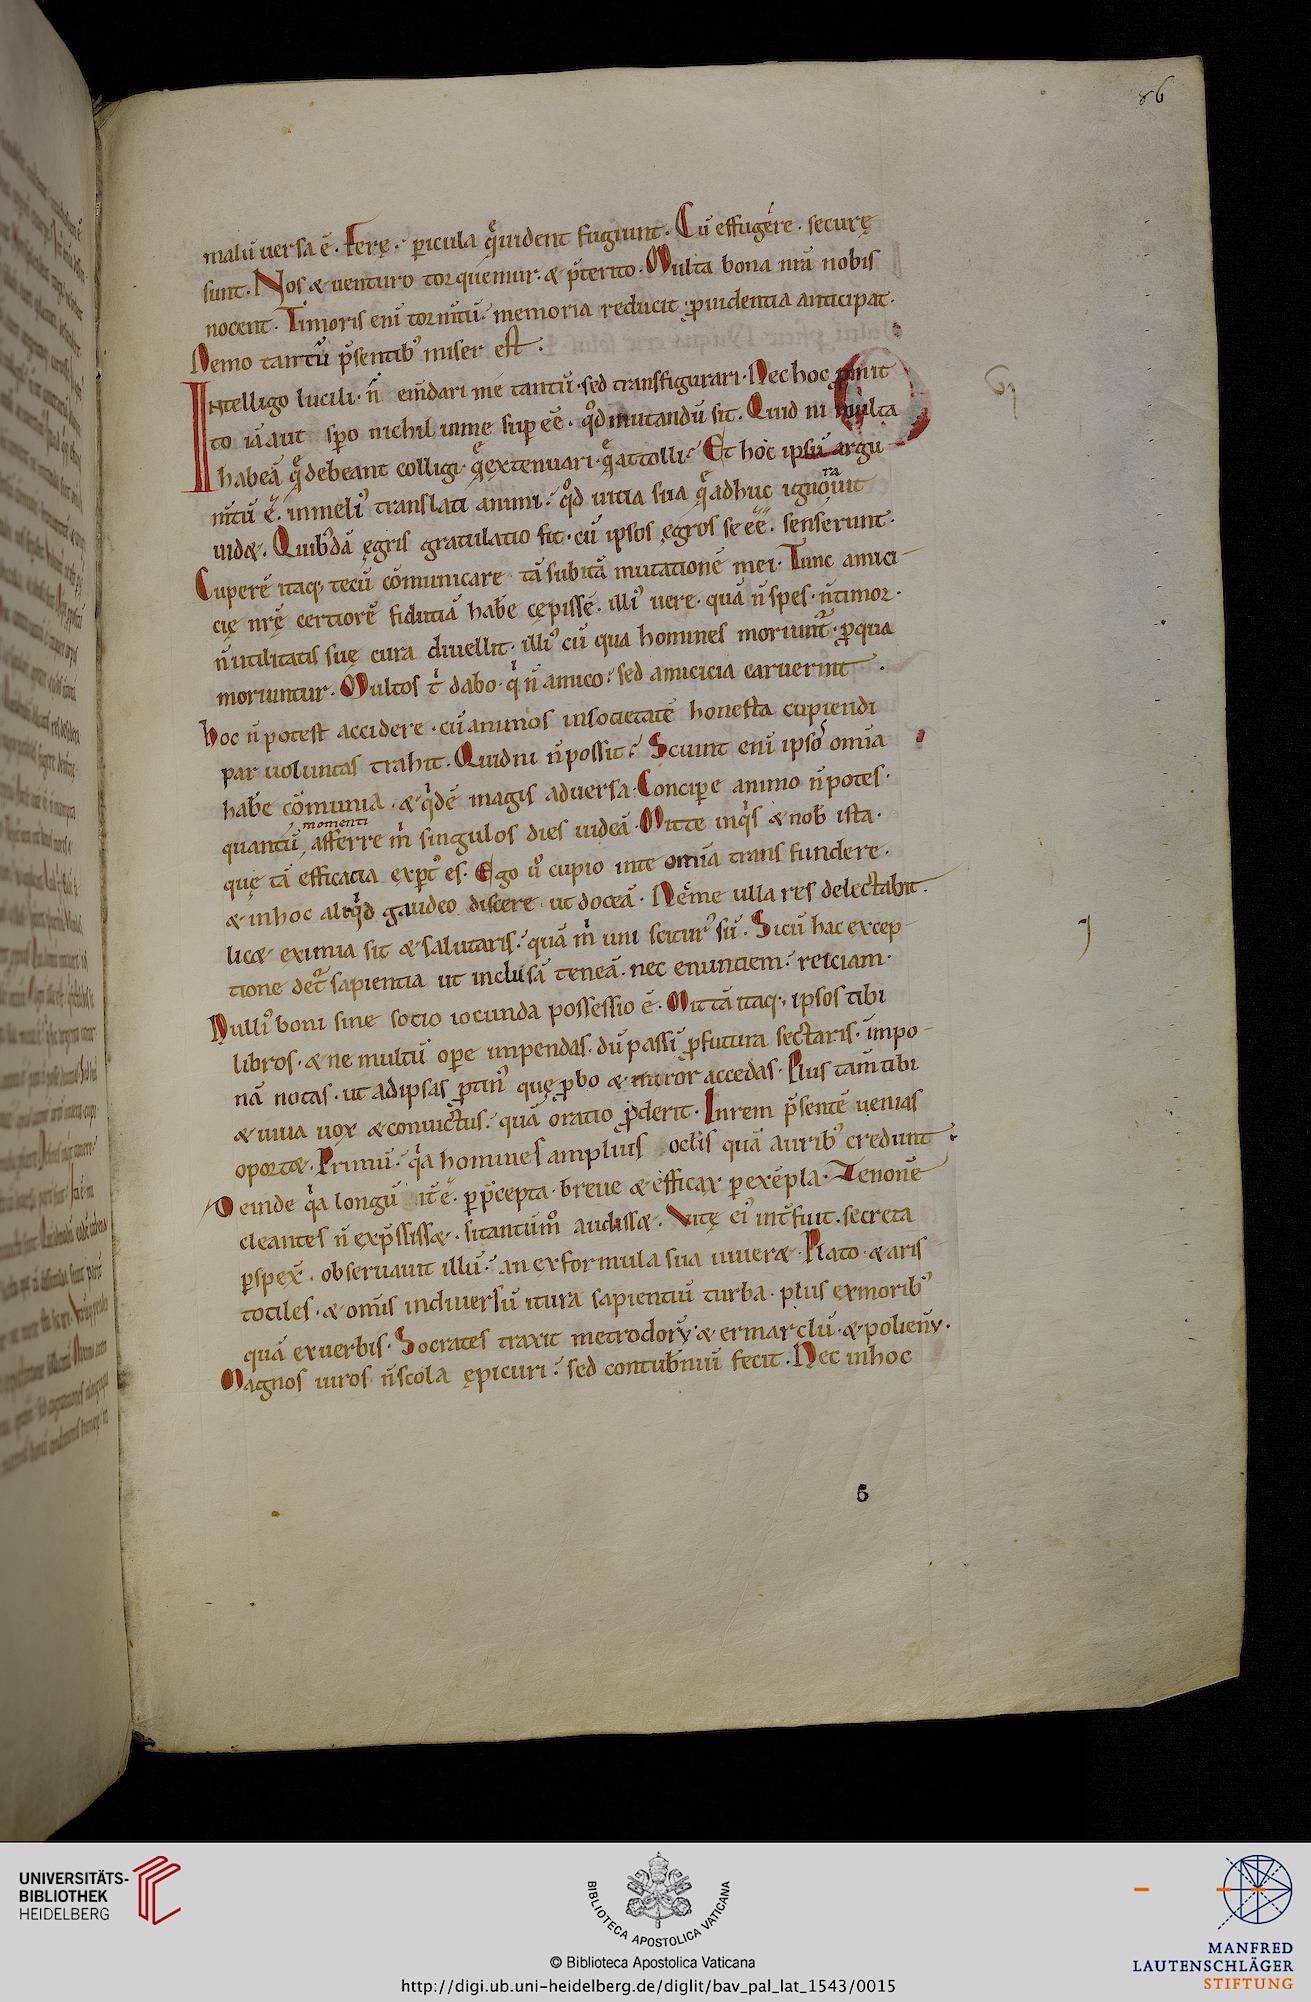 86
malū versa ē. Ferę. ꝑicula q̄ vident fugiunt. Cū effugēre. securę
sunt. Nos & venturo torquemur. & p̄terito. Multa bona nr̄a nobis
nocent. Timoris eni tormtū memoria reducit. ꝓuidentia anticipat.
Nemo tantū p̄sentib᾿ miser est.
Intelligo lucili. n̄ em̄dari me tantū. sed transfigurari. Nec hoc ꝓmit
to iā aut spero nichil inme supeē. qd mutandū sit. Quid ni multa
habeā q̄ debeant colligi. q̄ extenuari. q̄ attolli. Et hoc ipsū argu
mtū ē. inmeli᾿ translati animi. qd uitia sua q̄ adhuc ignorauit
uid&. Quib᾿dā ęgris gratulatio fit. cū ipsos ęgros se eē. senserunt.
Cuperē itaq; tecū cōmunicare tā subitā mutationē mei. Tunc amici-
cię nr̄ę certiorē fidutiā habē cępissē. illi᾿ uere. quā n̄ spes. n̄ timor.
n̄ utilitatis suę cura diuellit. illi᾿ cū qua homines moriunt̄. ꝓ qua
moriuntur. Multos t͛ dabo. q͛ n̄ amico. sed amicicia caruerint.
hoc n̄ potest accidere. cū animos insocietatē honesta cupiendi
par uoluntas trahit. Quidni n̄ possit. Sciunt eni ipsos omīa
habē cōmunia. & q͛dē magis adversa. Concipe animo n̄ potes.
momenti
quantū afferre m͛ singulos dies uideā. Mitte inq͛s & nob ista.
quę tā efficacia expt᾿ es. Ego u͛ cupio inte omīa transfundere.
& inhoc aliq͛d gaudeo discere ut doceā. Nec̄ me ulla res delectabit.
lic& eximia sit & salutaris. quā m͛ uni scitur᾿ sū. Si cū hac excep-
tione det͛ sapientia ut inclusā teneā. nec enunciem. reiciam.
Nulli᾿ boni sine socio iocunda possessio ē. Mittā itaq; ipsos tibi
libros. & ne multū ope impendas. dū passī ꝓfutura sectaris. impo-
nā notas. ut adipsas ꝓtin᾿ quę ꝓbo & miror accedas. Plus tam̄ tibi
& uiua uox & conuictus. quā oratio ꝓderit. Inrem p̄sentē uenias
oport&. Primū. q͛a homines amplius oclis quā aurib᾿ credunt.
Deinde q͛a longū it̄ ē. ꝑ p̄cepta. breue & efficax ꝑ exēpla. Zenonē
cleantes n̄ exp̄ssiss&. sitantūm͛ audiss&. Vitę ei᾿ int̄fuit. secreta
ꝑspex̄. obseruauit illū. an exformula sua uiuer&. Plato. & aris
totiles. & om̄is indiuersū itura sapientiū turba. plus ex morib᾿
quā exuerbis. Socrates traxit metrodorū. & ermarclū. & polienū.
Magnos uiros n̄ scola ępicuri. sed contubniū fecit. Nec inhoc
UNIVERSITÄTS-
BIBLIOTHEK
HEIDELBERG
BIBLIOTECA APOSTOLICA VATICANA
© Biblioteca Apostolica Vaticana
http://digi.ub.uni-heidelberg.de/diglit/bav_pal_lat_1543/0015
MANFRED
LAUTENSCHLÄGER
STIFTUNG